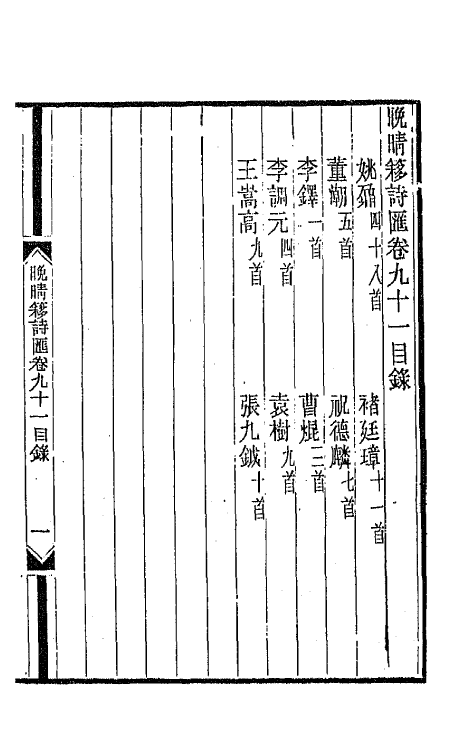 晚晴簃詩匯卷九十一目錄
姚鼐四十八首 褚廷璋十一首
董潮五首 祝德麟七首
李鐸一首 曹焜三首
李調元四首 袁樹九首
王嵩高九首 張九鉞十首
晚晴簃詩匯卷九十一目錄 一